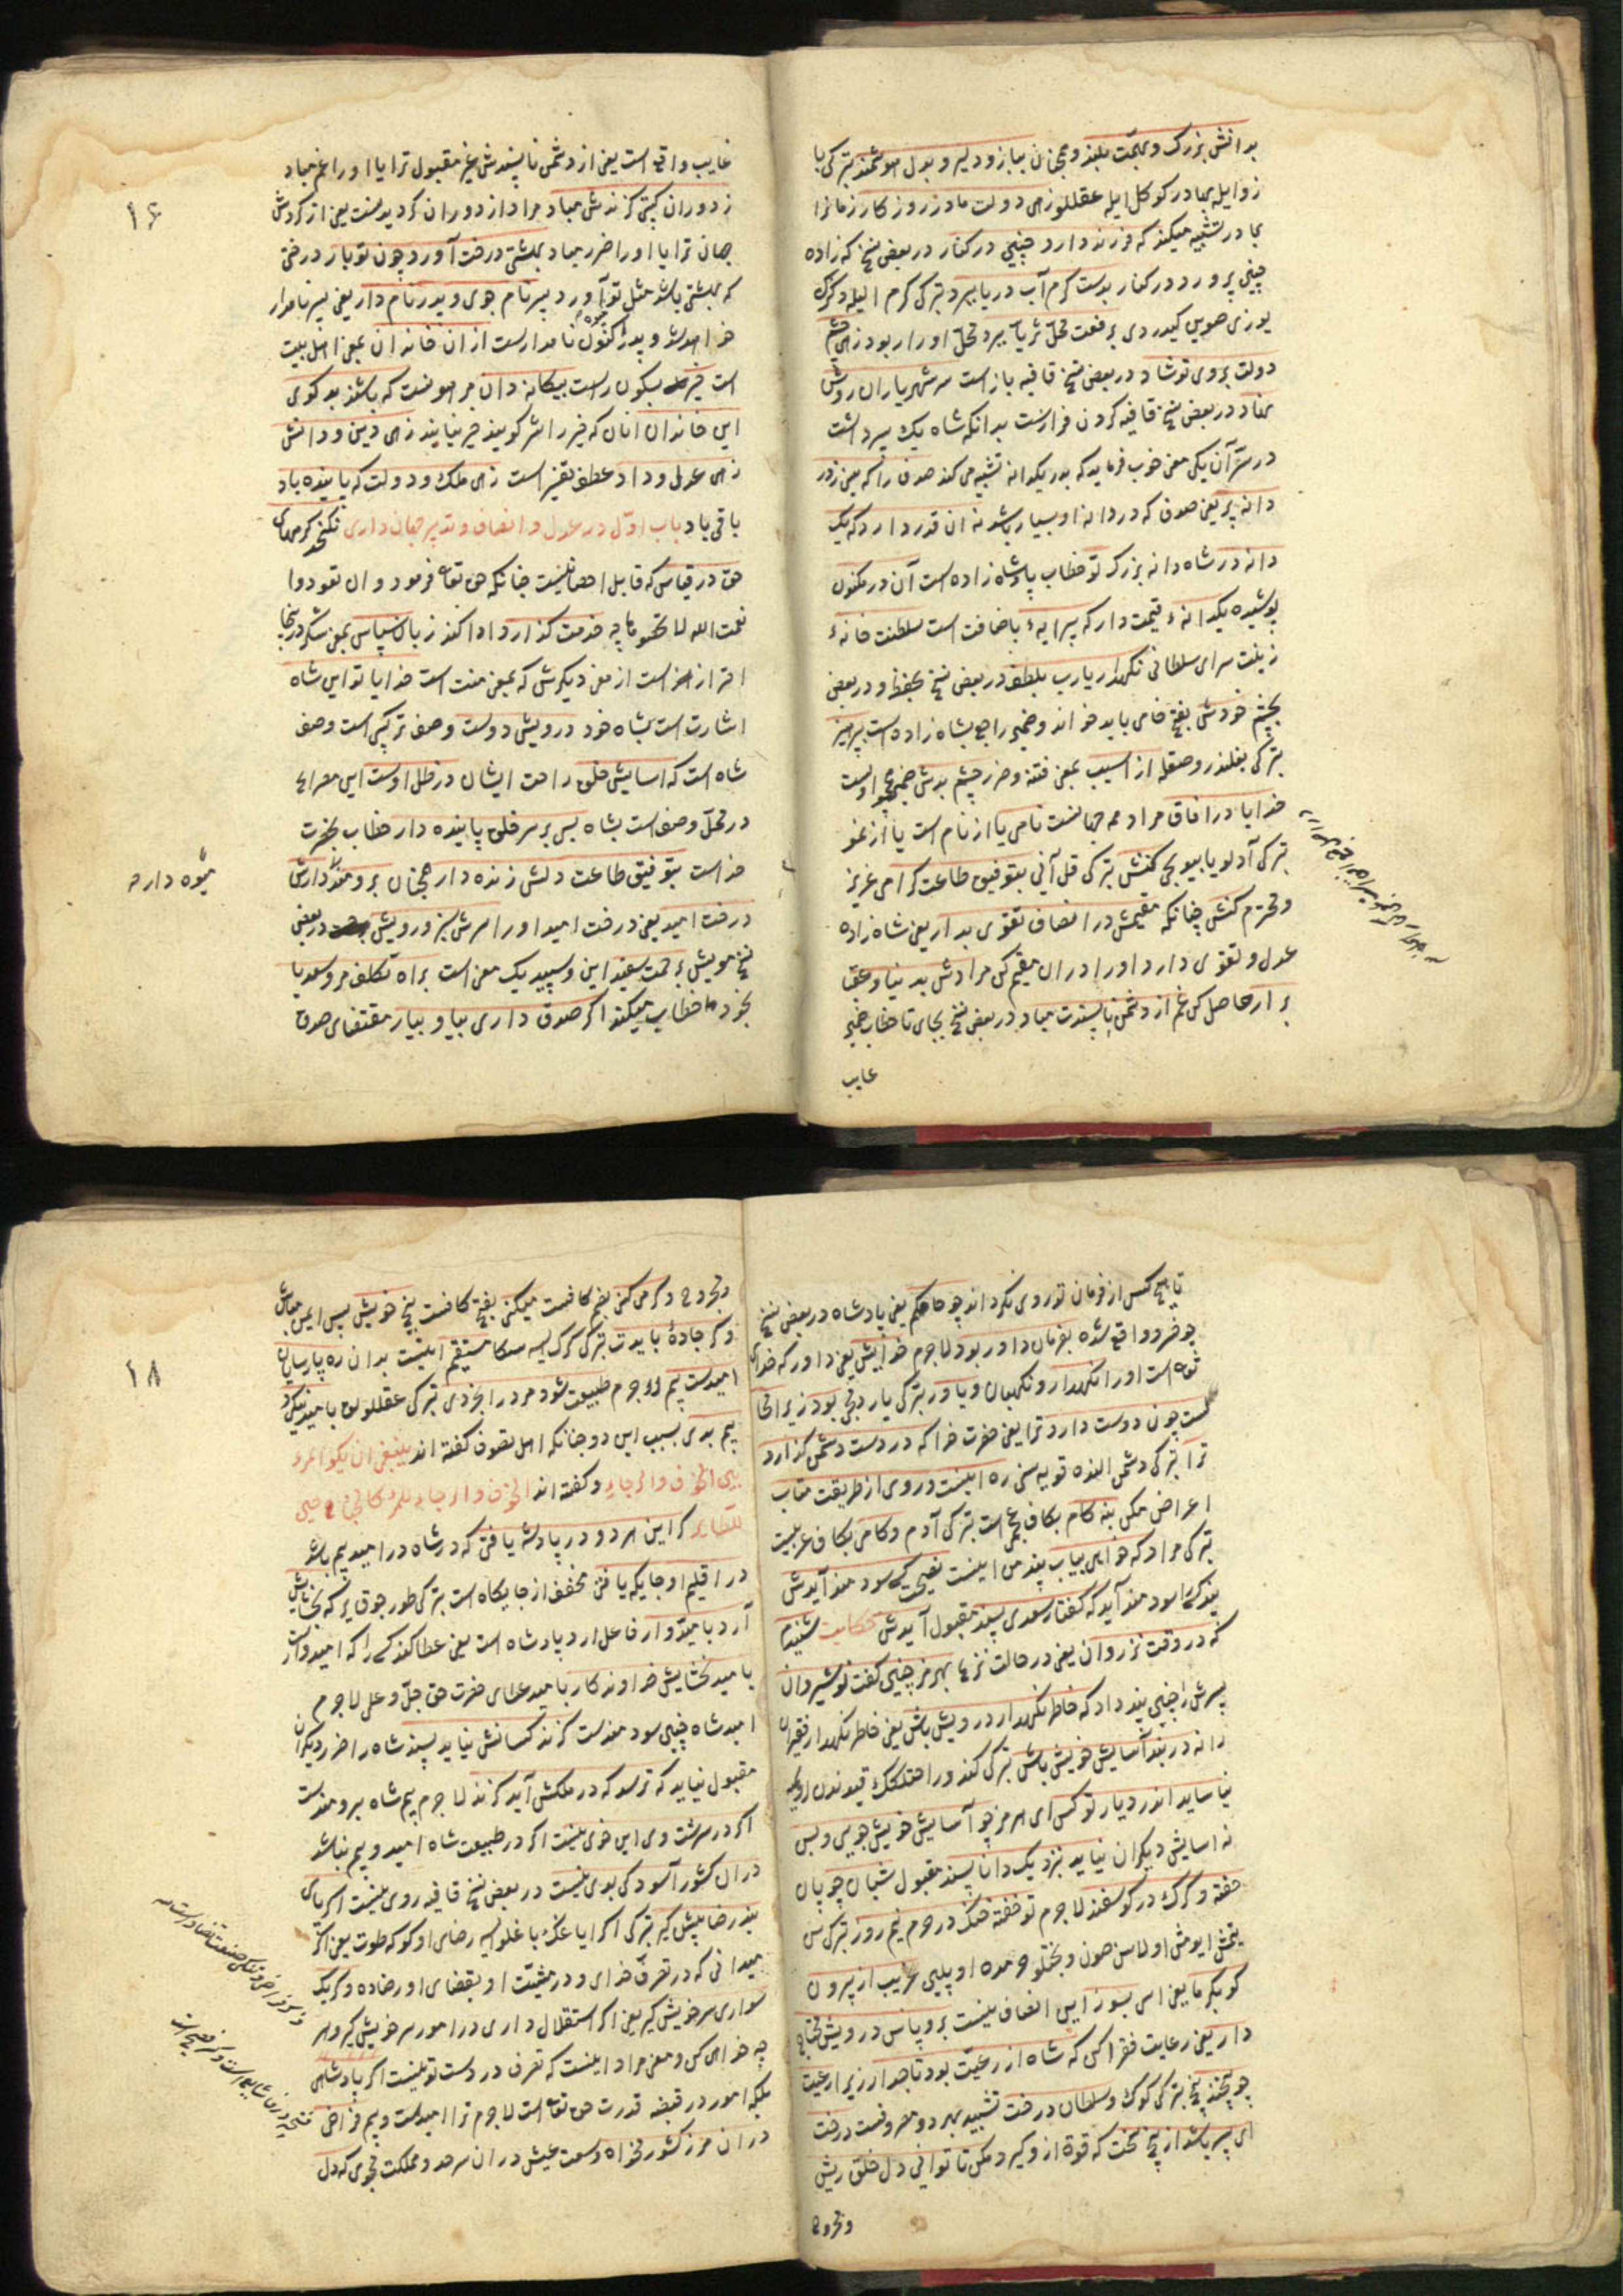 بدانش بزرگ و بهمت بلند و همچنان ببازو دلیر و بدل هوشمند ترکی با
زوایله بهادر کوکل ایله عقللو زهی دولت مادر روزگار زمانرا
بمادر تشبیه میکند که فرزند دارد چنین در کنار در بعض نسخ که زاده
چنین پرورد در کنار بدست کرم آب دریا ببرد ترکی کرم الیله دکزک
یوزی صوین کیدردی برفعت محل ثریا ببرد محل او را ربود زهی چشم
دولت بروی تو شاد در بعض نسخ قافیه باز است سر شهریاران روش
نهاد در بعض نسخ قافیه کردن فرازست بدانکه شاه یک پسر داشت
در ستر آن یکی معنی خوب فرماید که بدر یکدانه تشبیه می کند صدف را که بینی ز در
دانه پر یعنی صدف که در دانه او بسیار باشد نه آن قدر دارد که یک
دانه در شاه دانه بزرگ تو خطاب پادشاه زاده است آن در مکنون
پوشیده یکدانهٔ قیمت دار که پیرایهٔ باضافت است سلطنت خانهٔ
زینت سرای سلطانی نگهدار یارب بلطف در بعض نسخ بحفظ و در بعض
بچشم خودش بفتح خا می باید خواند و ضمیر راجع بشاه زاده است بپرهیز
ترکی بغلندر و صقله از آسیب بمعنی فتنه و ضرر چشم بدش ضمیر اوست
خدایا در آفاق مراد همه جهانست نامی یا از نام است یا از نمو
ترکی آدلو یا بیویجی کنش ترکی قل آنی بتوفیق طاعت گرامی عزیز
و محترم کنش چنانکه مقیمش در انصاف تقوی بدار یعنی شاه زاده
عدل و تقوی دارد او را در آن مقیم کن مرادش بدنیا و عقبا
برآر حاصل کن غم از دشمن ناپسندت مباد در بعض نسخ بجای تا خطاب ضمیر
غایب
غایب واقع است یعنی از دشمن ناپسندش غیر مقبول ترا یا او را غم مباد
ز دوران گیتی گزندش مباد مراد از دوران گردیدنست یعنی از گردش
جهان ترا یا او را ضرر مباد بهشتی درخت آورد چون تو بار درختی
که بهشتی باشد مثل تو میوه آورد پسر نام جوی و پدر نام دار یعنی پسر نامدار
خواهد شد و پدر اکنون نامدارست از آن خاندان بمعنی اهل بیت
است خیر بیکون راست بیگانه دان هر هونست که باشند بدگوی
این خاندان آنان که خیر را شر گویند خیر نیابند زهی دین و دانش
زهی عدل و داد عطف تفسیر است زهی ملک و دولت که پاینده باد
باقی باد باب اول در عدل و انصاف و تدبیر جهان داری نگنجد کرمهای
حق در قیاس که قابل احصا نیست چنانکه حق تعا فرمود وان تعودوا
نعمت الله لا تحصوها چه خدمت گذارد ادا کند زبان سپاس بمعنی شکر در اینجا
احتراز است از معنی دیگرش که بمعنی منت است خدایا تو این شاه
اشارت است بشاه خود درویش دوست وصف ترکیبی است وصف
شاه است که آسایش خلق راحت ایشان در ظل اوست این مصراع
در محل وصف است بشاه بسی بر سر خلق پاینده دار خطاب بحضرت
خداست بتوفیق طاعت دلش زنده دار همچنان برومند دارش
درخت امید یعنی درخت امید او را سرش سبز و رویش در بعض
نسخ مویش برحمت سفید این و سپید یک معنی است براه تکلف مرو سعدیا
بخود خطاب میکند اگر صدق داری بیا و بیار مقتضای صدق
۱۶
میوه داره
تا هیچ کس از فرمان تو روی نگرداند چو حاکم یعنی پادشاه در بعض نسخ
چو خسرو واقع شده بفرمان داور بود لا جرم خدایش یعنی داور که خدای
تعا است او را نگهدار و نگهبان و یاور ترکی یاردمجی بود زیرا محال
است چون دوست دارد ترا یعنی حضرت خدا که در دست دشمن گذارد
ترا ترکی دشمن النده قویه سنی ره اینست و روی از طریقت متاب
اعراض مکن بنه گام بکاف عجم است ترکی آدم و کامی بکاف عربیست
ترکی مراد که خواهی بیاب پند من اینست نصیحت کسی سود مند آیدش
پند کسی را سود مند آید که گفتار سعدی پسند مقبول آیدش حکایت شنیدم
که در وقت نزع روان یعنی در حالت نزعها بهرمز چنین گفت نوشیروان
پسرش را چنین پند داد که خاطر نگهدار درویش باش یعنی خاطر نگهدار فقیران
را نه در بند آسایش خویش باش ترکی کندو راحتلغک قیدنده اولمه
نیاساید اندر دیار تو کس ای هرمز چو آسایش خویش جویی و بس
نه آسایش دیگران نیاید بنزدیک دانا پسند مقبول شبان چوپان
خفته و گرگ در گوسفند لا جرم تو خفته خنگ در جوم نیم روز ترکی سن
یتمش ایومش اولاسن صون و بختلو جمده اویلین غریب از بیرون
گو بگرما یعنی اسی بسوز این انصاف نیست برو پاس درویش محتاج
دار یعنی رعایت فقرا کن که شاه از رعیت بود تاجدار زیرا رعیت
چو بیخند بیخ ترکی کوک و سلطان درخت تشبیه بهر دو معروفست درخت
ای پسر باشد از بیخ سخت که قوة از و گیرد مکن تا توانی دل خلق ریش
و مجروح
و مجروح و گر می کنی بفتح کافست میکنی بفتح کافست بیخ خویش پس ایمن مباش
و گر جادهٔ بایدت ترکی کرک ایسه سکا مستقیم اینست بدان ره پارسایان
امیدست بیم لا جرم طبیعت شود مرد را بخردی ترکی عقللولق بامید نیکی و
بیم بدی بسبب این دو چنانکه اهل تصوف گفته اند ینبغی ان یکون المرء
بین الخوف والرجاء و گفته اند الخوف والرجاء للمرء کالجناحین
للطایر گر این هر دو در پادشه یافتی که در شاه در امید بیم باشد
در اقلیم او جایگه یافتی مخفف از جایگاه است ترکی طورجق یر که بخشایش
آرد بامیدوار فاعل آرد پادشاه است یعنی عطا کند کسی را که امیدوار
بامید بخشایش خداوندگار بامید عطای حضرت حق جل و علی لا جرم
امید شاه چنین سود مندست گزند کسانش نیاید پسند شاه را ضرر دیگران
مقبول نیاید که ترسد که در ملکش آید گزند لا جرم بیم شاه برومندست
اگر در سرشت وی این خوی نیست اگر در طبیعت شاه امید و بیم نباشد
در آن کشور آسودگی بوی نیست در بعض نسخ قافیه روی نیست اگر پای
بند رضا پیش گیر ترکی اگر ایاغک باغلو ایسه رضای اوکو که طوت یعنی اگر
میدانی که در تعرف خدای و در مشیت او بقضای او رضا ده وگر یک
سواری سر خویش گیر یعنی اگر استقلال داری در امور سر خویش گیر و هر
چه خواهی کن و معنی مراد اینست که تعرف در دست تو نیست اگر پادشاهی
بلکه امور در قبضه قدرت حق تعا است لا جرم ترا امیدست و بیم فراخی
در آن مرز کشور مخواه وسعت عیش در آن سرحد و مملکت مجوی که دل
۱۸